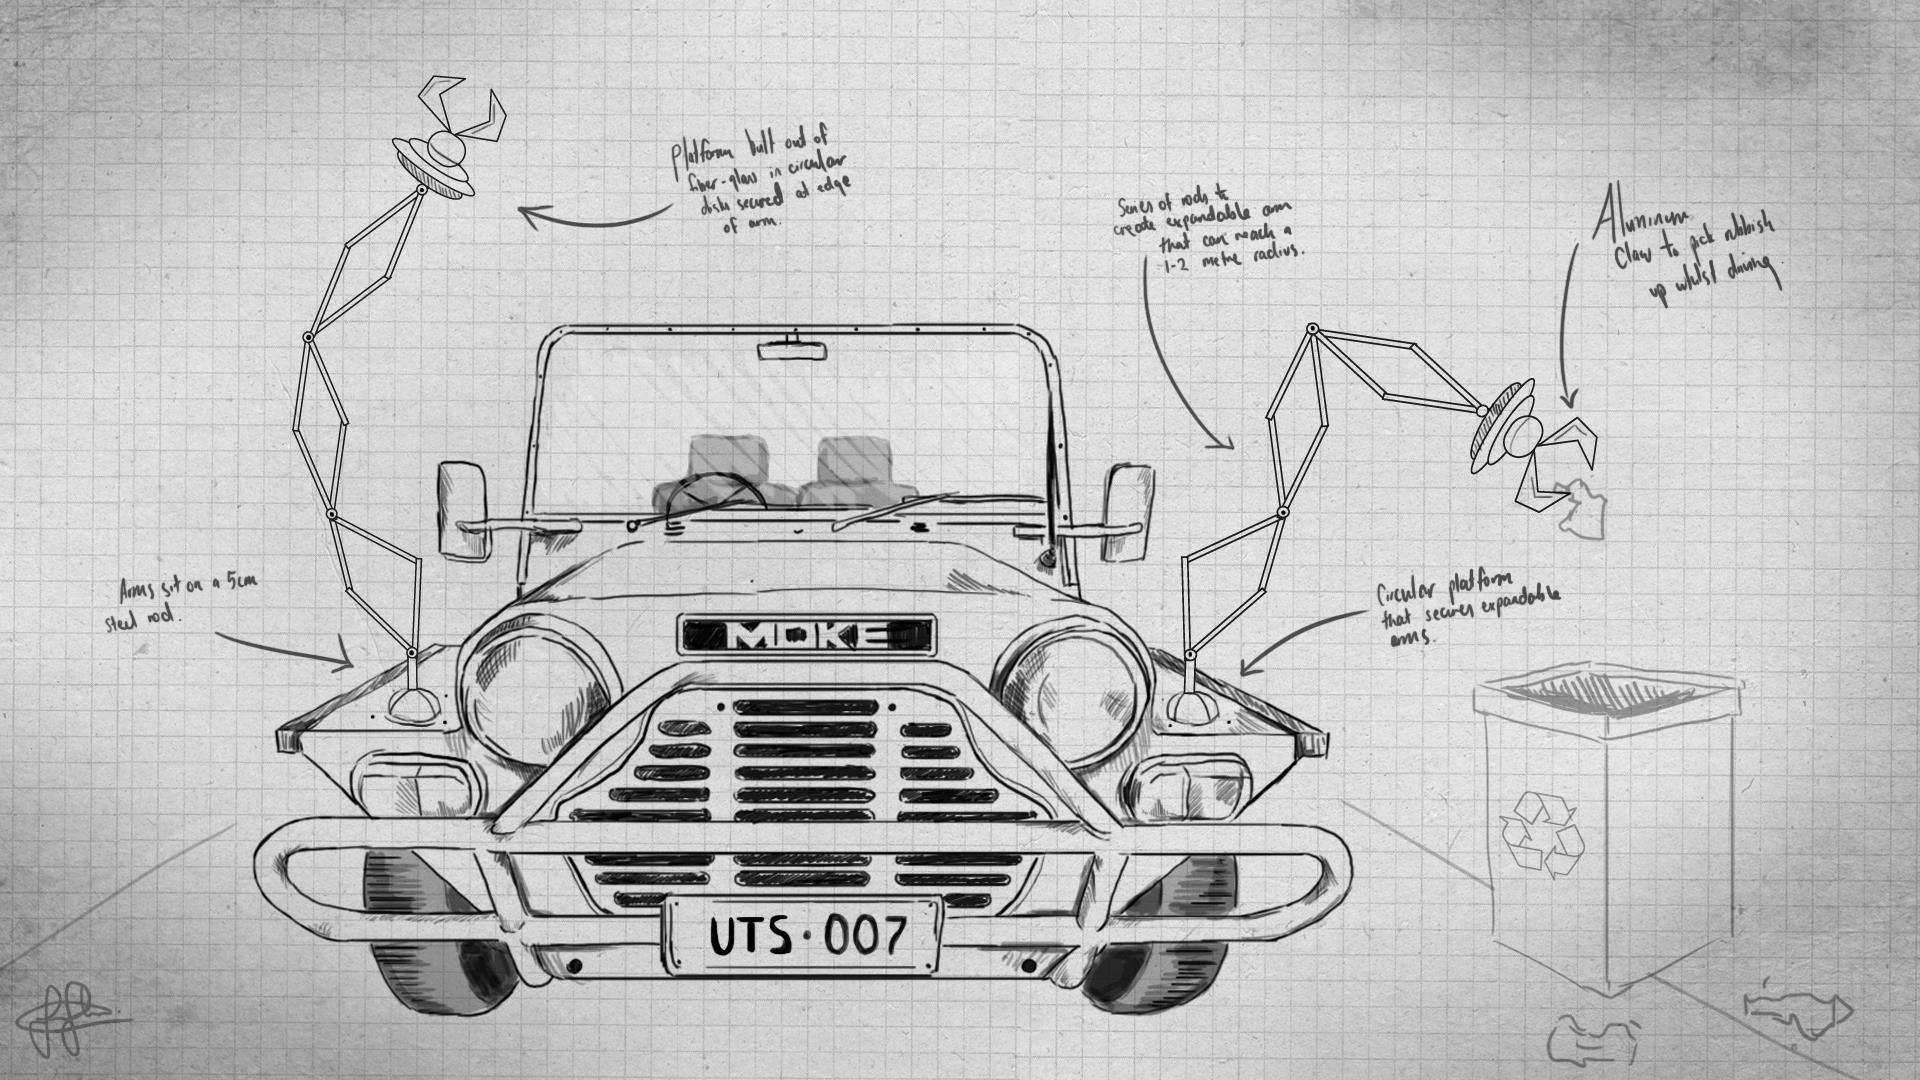 Platform built out of
fiber-glass in circular
disks secured at edge
of arm.
Series of rods to
create expandable arm
that can reach a
1-2 metre radius.
Aluminum
Claw to pick rubbish
up whilst driving
Arms sit on a 5cm
steel rod.
Circular platform
that secures expandable
arms.
MOKE
UTS·007